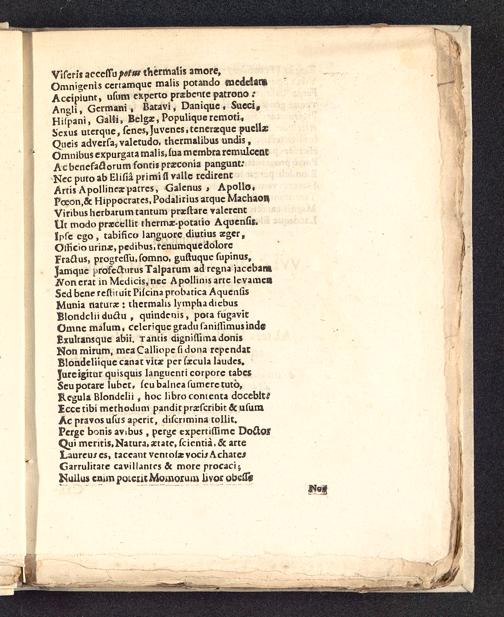 Viseris accessu potus thermalis amore,
Omnigenis certamque malis potando medelam
Accipiunt, usum experto præbente patrono:
Angli, Germani, Batavi, Danique, Sueci,
Hispani, Galli, Belgæ, Populique remoti,
Sexus uterque, senes, Juvenes, teneræque puellæ
Queis adversa, valetudo, thermalibus undis,
Omnibus expurgata malis, sua membra remulcent
Ac benefactorum fontis præconia pangunt:
Nec puto ab Elisiâ primi si valle redirent
Artis Apollineæ patres, Galenus, Apollo,
Pœon, & Hippocrates, Podalirius atque Machaon
Viribus herbarum tantum præstare valerent
Ut modo præcellit thermæ-potatio Aquensis.
Ipse ego, tabifico languore diutius æger,
Officio urinæ, pedibus, renumque dolore
Fractus, progressu, somno, gustuque supinus,
Jamque profecturus Talparum ad regna jacebam
Non erat in Medicis, nec Apollinis arte levamen
Sed bene restituit Piscina probatica Aquensis
Munia naturæ: thermalis lympha diebus
Blondelii ductu, quindenis, pota fugavit
Omne malum, celerique gradu sanissimus inde
Exultansque abii. Tantis dignissima donis
Non mirum, mea Calliope si dona rependat
Blondeliique canat vitæ per sæcula laudes.
Jure igitur quisquis languenti corpore tabes
Seu potare lubet, seu balnea sumere tutò,
Regula Blondelii, hoc libro contenta docebit:
Ecce tibi methodum pandit præscribit & usum
Ac pravos usus aperit, discrimina tollit.
Perge bonis avibus, perge expertissime Doctor
Qui meritis, Natura, ætate, scientiâ, & arte
Laureus es, taceant ventosæ vocis Achates
Garrulitate cavillantes & more procaci;
Nullus enim poterit Momorum livor obesse
Nos